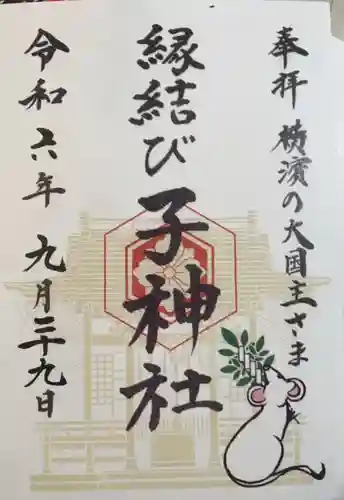 奉拝 横濱の大国主さま
縁結び子神社
令和六年九月二十九日